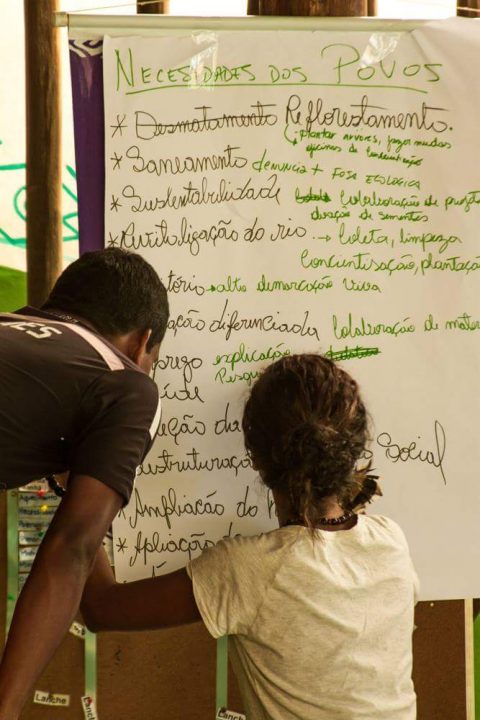 NECESSIDADES DOS POVOS
* Desmatamento Reflorestamento.
plantar arvores, fazer mudas
oficinas de
* Saneamento denuncia + FOSSA ECOLOGICA
* Sustentabilidade Colaboração de projeto
doação de sementes
* Revitaligação do rio --> Coleta, limpeza
Concientisação, plantação
tório alto demarcação viva
ação diferenciada Colaboração de mater
prego explicação
Pesqui
úde
ução da
estruturaçã Social
Ampliação do
* Apliação
Lanche
Lanche
Lanche